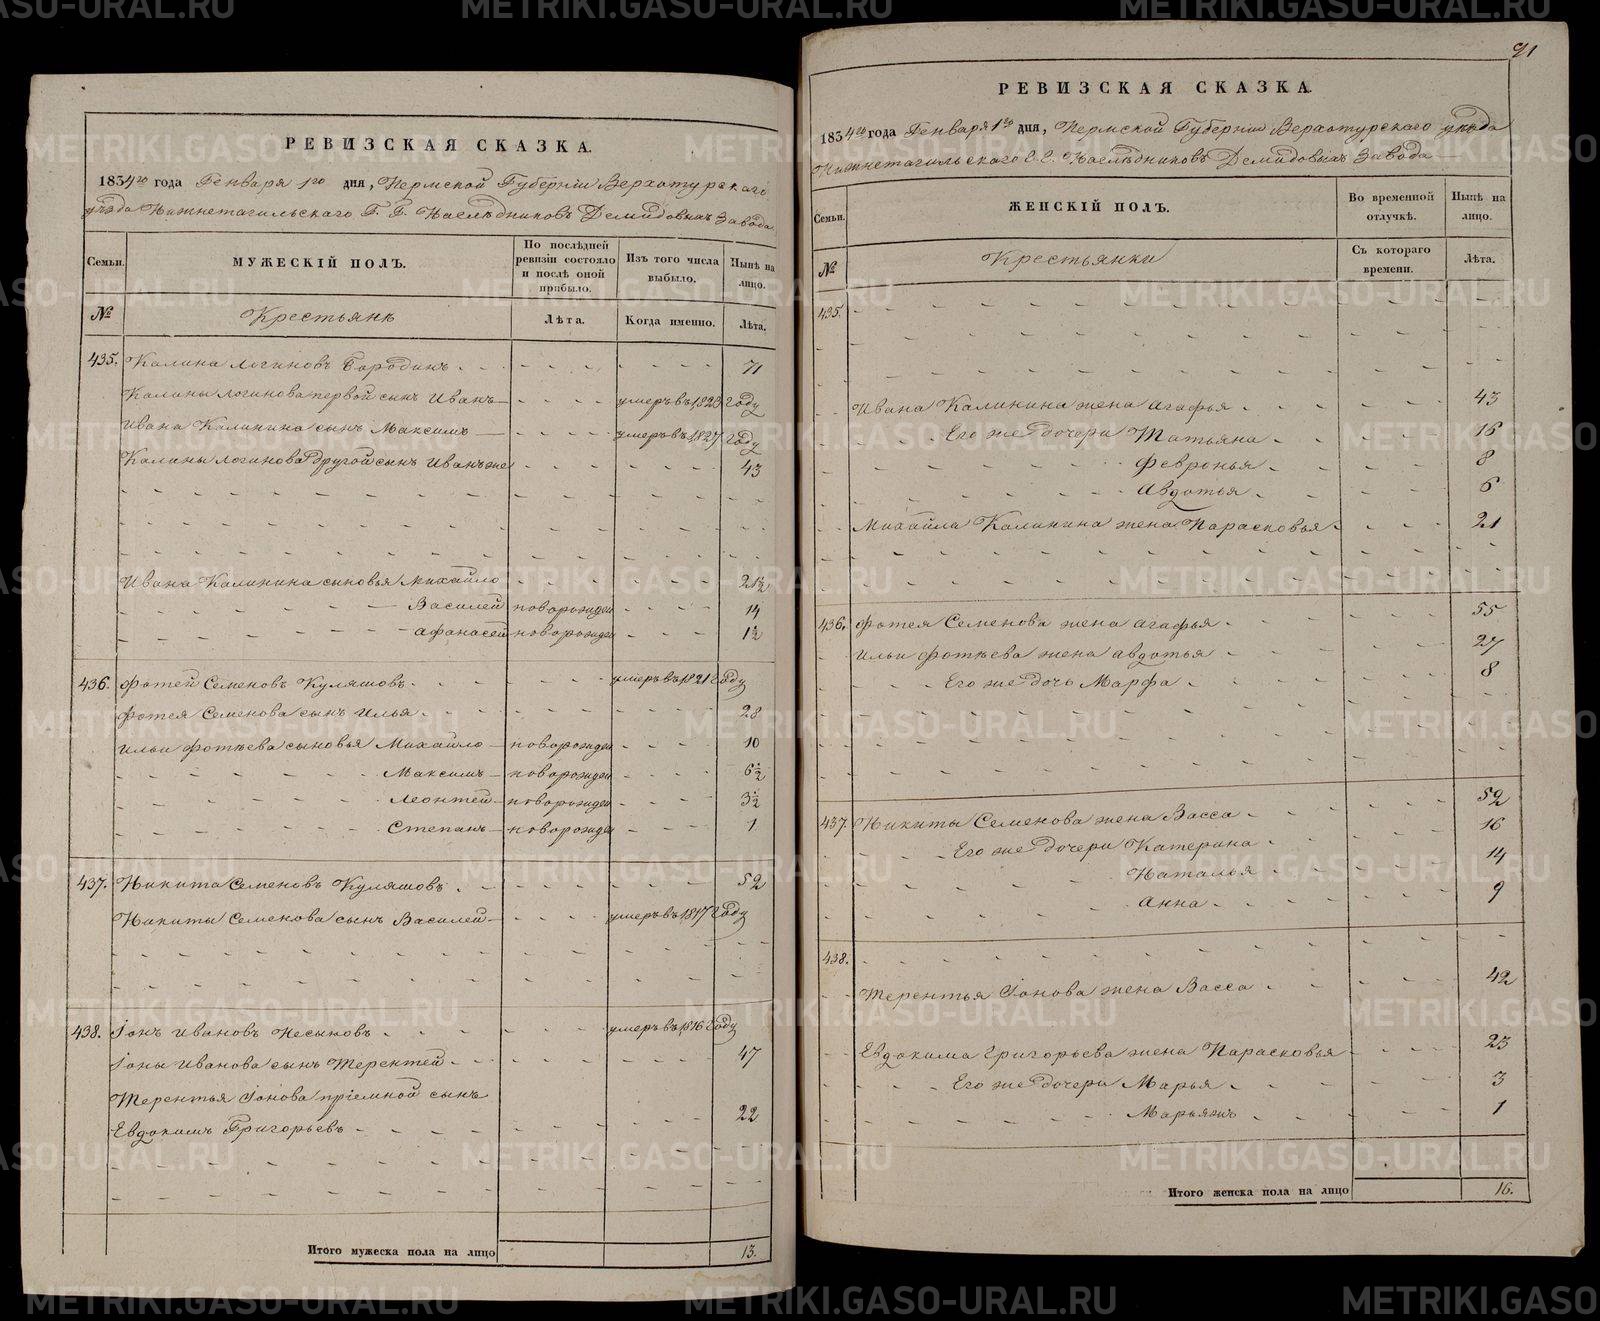 РЕВИЗСКАЯ СКАЗКА.
1834го года Генваря 1го дня, Пермской Губерніи Верхотурскаго
уѣзда Нижнетагильскаго Г. Г. Наслѣдниковъ Демидовыхъ Завода
Семьи.
МУЖЕСКІЙ ПОЛЪ.
По послѣдней ревизіи состояло и послѣ оной прибыло.
Изъ того числа выбыло.
Нынѣ на лицо.
№
Крестьянъ
Лѣта.
Когда именно.
Лѣта.
435. Калина Логиновъ Бородинъ 71
Калины Логинова первой сынъ Иванъ умеръ въ 1823 Году
Ивана Калинина сынъ Максимъ умеръ въ 1827 Году
Калины Логинова другой сынъ Иванъ же 43
Ивана Калинина сыновья Михайло 21½
Василей новорожден 14
Афанасей новорожден 1½
436. Фотей Семеновъ Куляшовъ умеръ въ 1821 Году
Фотея Семенова сынъ Илья 28
Ильи Фотѣева сыновья Михайло новорожден 10
Максимъ новорожден 6½
Леонтей новорожден 3½
Степанъ новорожден 1
437. Никита Семеновъ Куляшовъ 52
Никиты Семенова сынъ Василей умеръ въ 1817 Году
438. Іонъ Ивановъ Песыковъ умеръ въ 1816 Году
Іоны Иванова сынъ Терентей 47
Терентья Іонова пріемной сынъ
Евдокимъ Григорьевъ 22
Итого мужеска пола на лицо 13.
91
РЕВИЗСКАЯ СКАЗКА.
1834го года Генваря 1го дня, Пермской Губерніи Верхотурскаго уѣзда
Нижнетагильскаго Г. Г. Наслѣдниковъ Демидовыхъ Завода
Семьи.
ЖЕНСКІЙ ПОЛЪ.
Во временной отлучкѣ.
Нынѣ на лицо.
№
Крестьянки
Съ котораго времени.
Лѣта.
435.
Ивана Калинина жена Агафья 43
Его же дочери Татьяна 16
Февронья 8
Авдотья 6
Михайла Калинина жена Парасковья 21
436. Фотея Семенова жена Агафья 55
Ильи Фотѣева жена Авдотья 27
Его же дочь Марфа 8
437 Никиты Семенова жена Васса 52
Его же дочери Катерина 16
Наталья 14
Анна 9
438.
Терентья Іонова жена Васса 42
Евдокима Григорьева жена Парасковья 23
Его же дочери Марья 3
Марья жъ 1
Итого женска пола на лицо 16.
METRIKI.GASO-URAL.RU